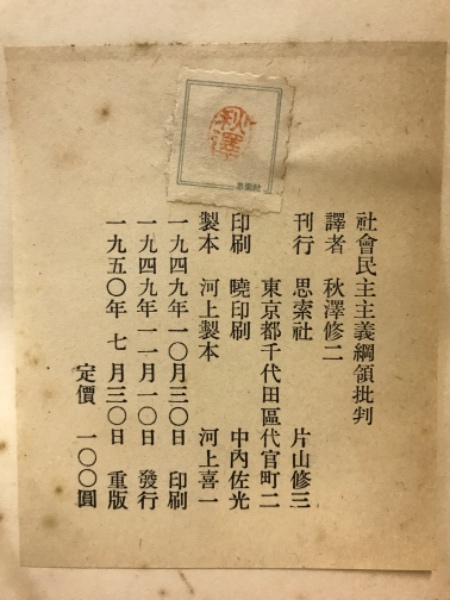 秋澤
思索社
社會民主主義綱領批判
譯者 秋澤修二
刊行 思索社 片山修三
東京都千代田區代官町二
印刷 曉印刷 中內佐光
製本 河上製本 河上喜一
一九四九年一〇月三〇日 印刷
一九四九年一一月一〇日 發行
一九五〇年 七月三〇日 重版
定價 一〇〇圓